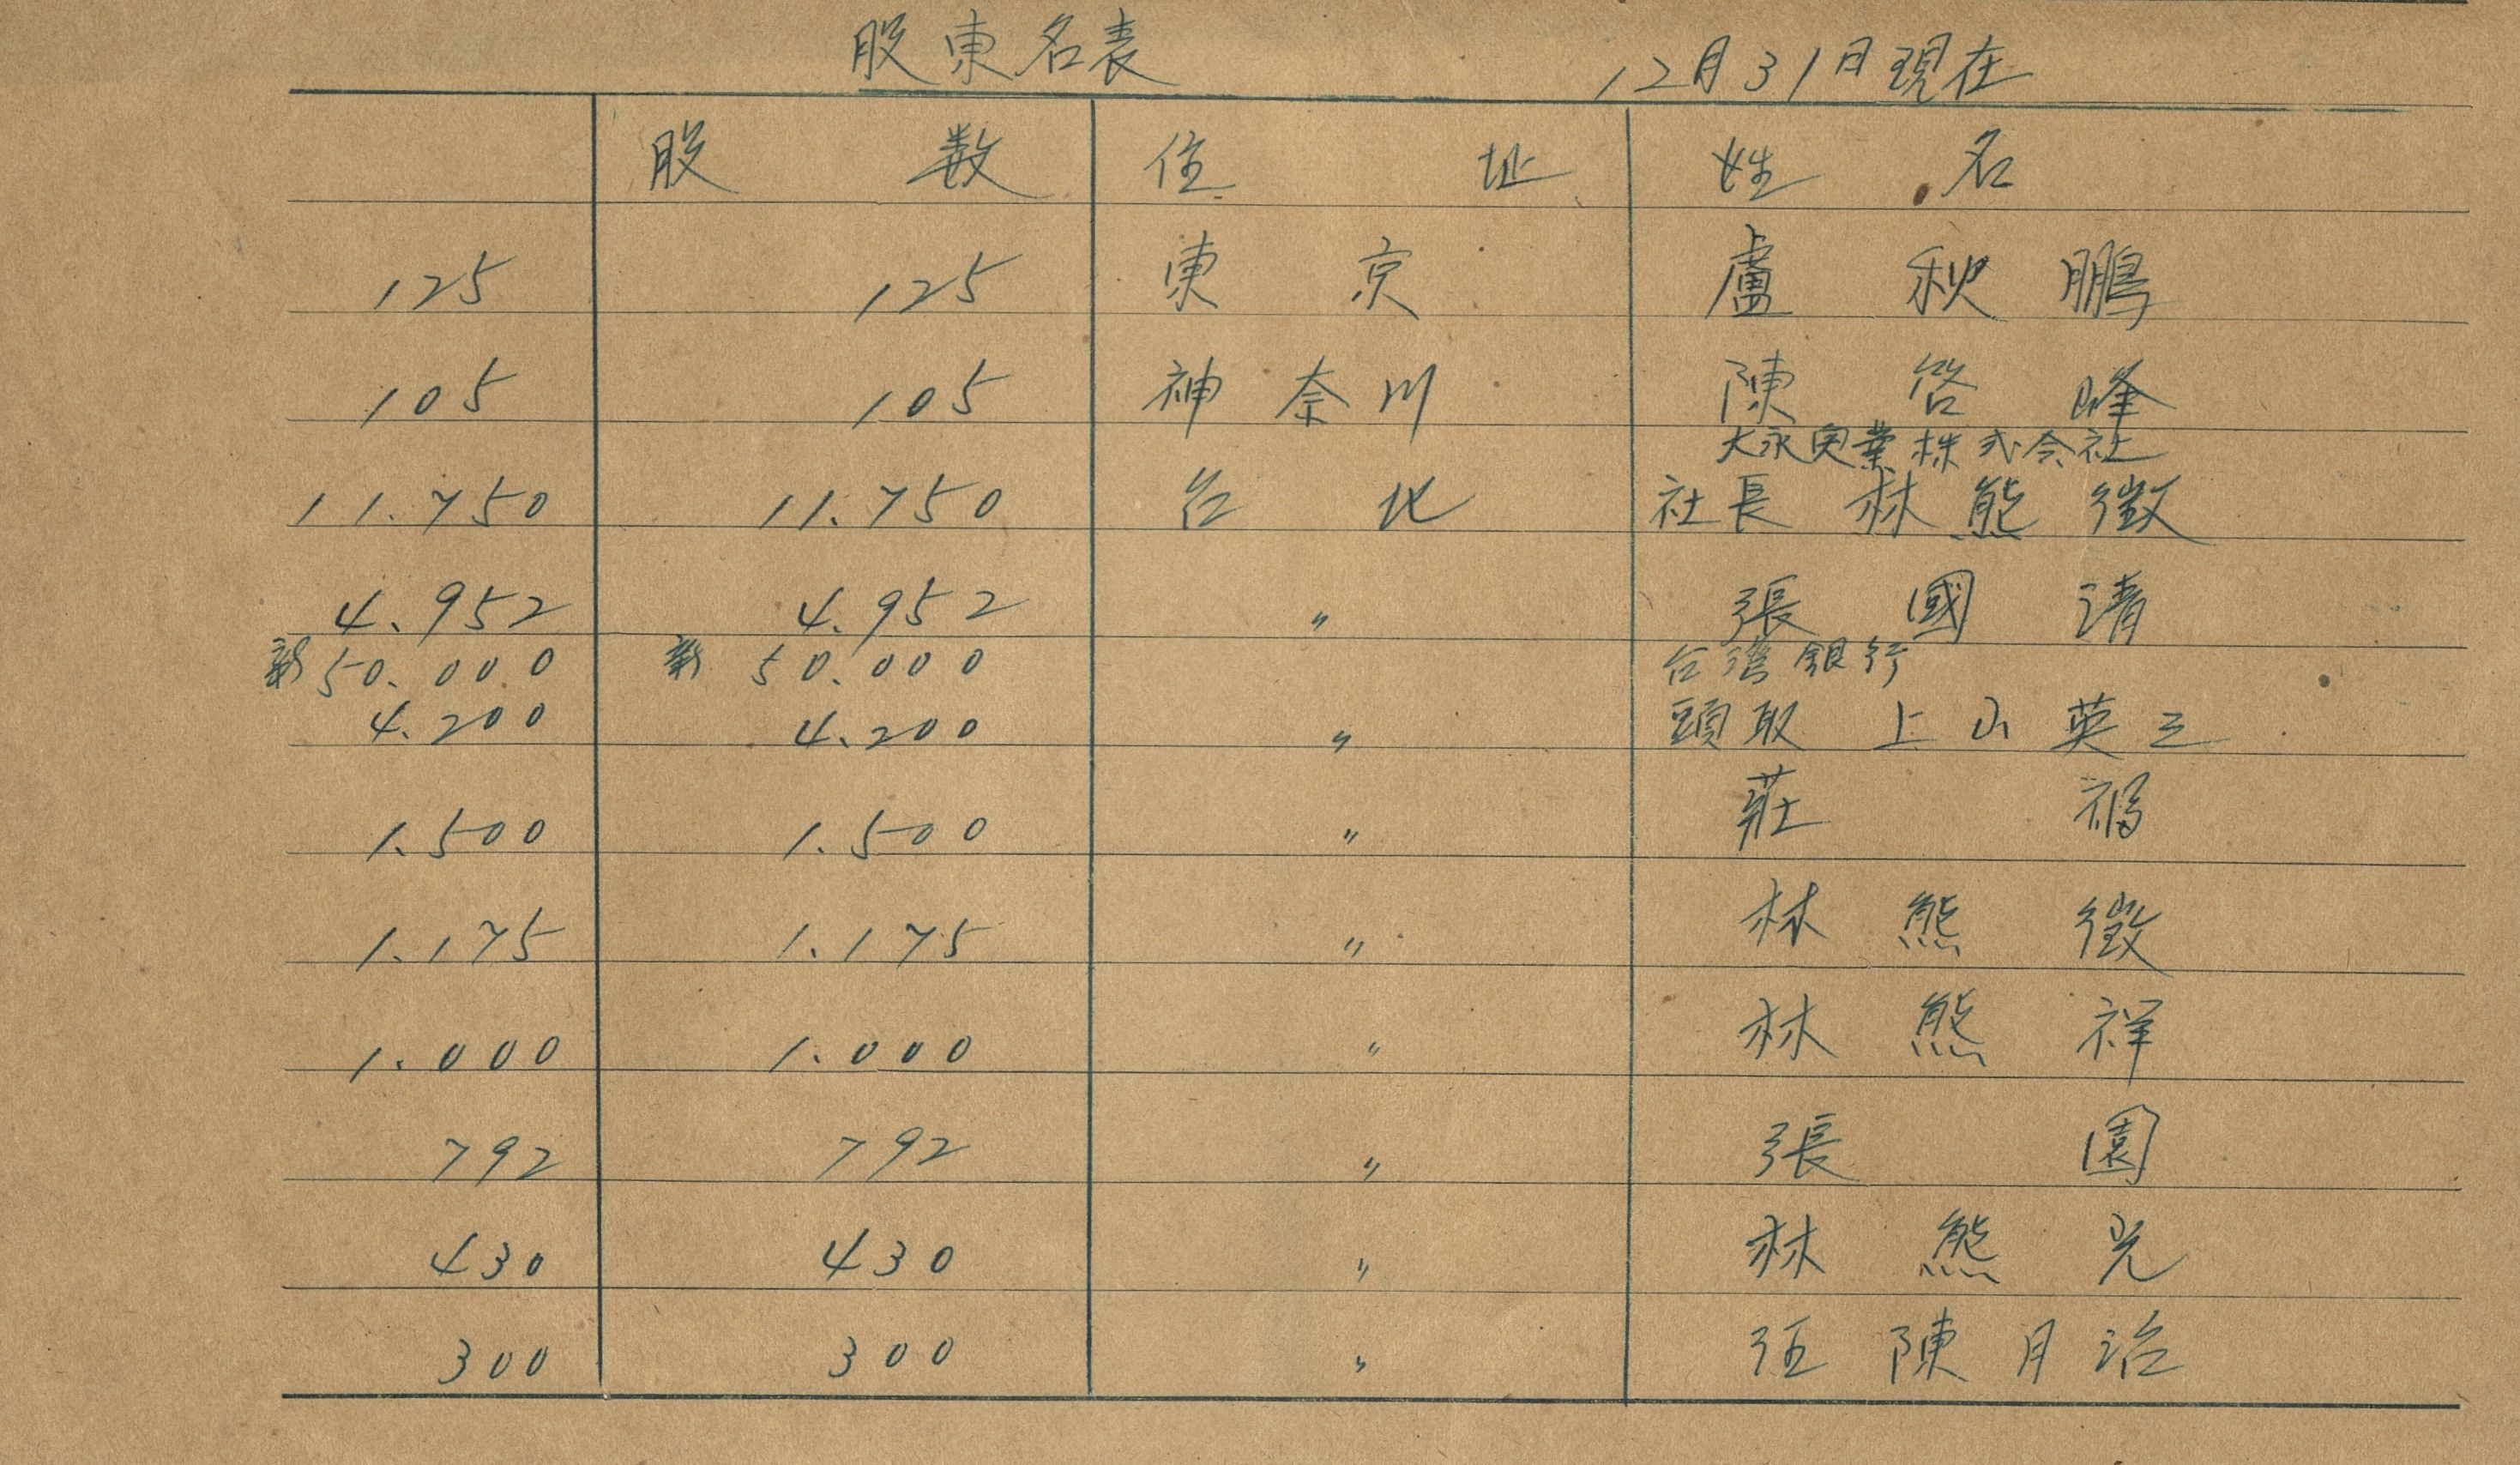 股東名表 12月31日現在
股數 住址 姓名
125 125 東京 盧秋鵬
105 105 神奈川 陳啓峰
大永興業株式会社
11.750 11.750 台北 社長 林熊徵
4.952 4.952 〃 張國清
新 50.000 新 50.000 台湾銀行
4.200 4.200 〃 頭取 上山英三
1.500 1.500 〃 莊福
1.175 1.175 〃 林熊徵
1.000 1.000 〃 林熊祥
792 792 〃 張園
430 430 〃 林熊光
300 300 〃 陳月治